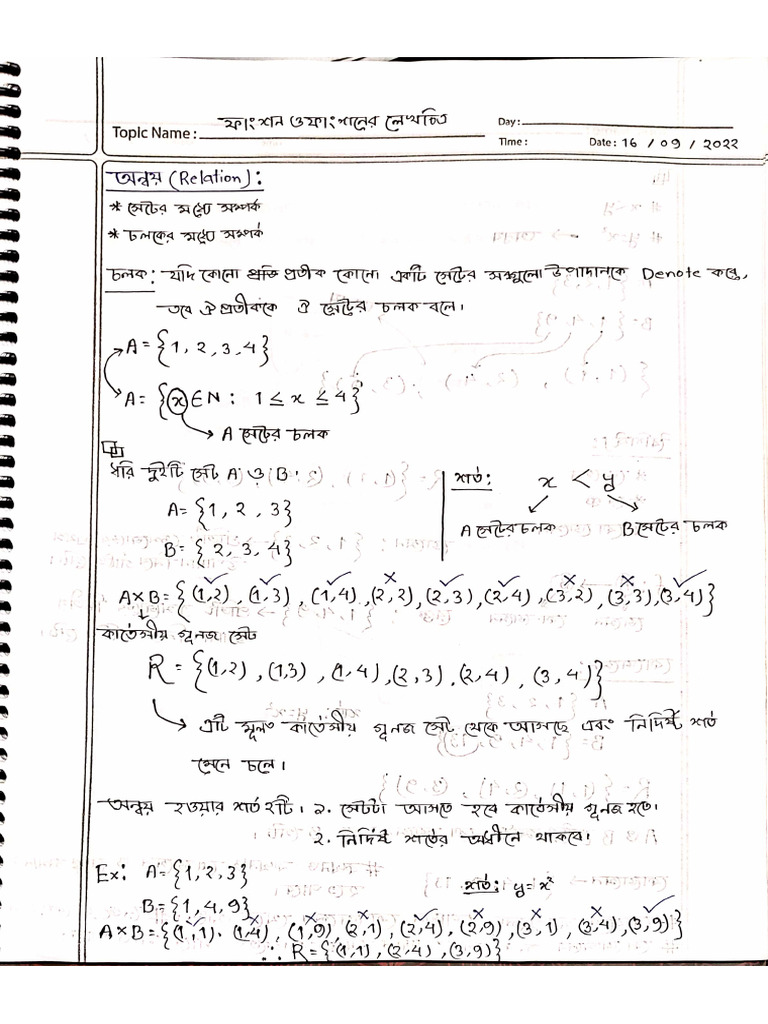 Topic Name : ফাংশন ও ফাংশনের লেখচিত্র
Day :
Time :
Date : 16 / 09 / 2022
অন্বয় (Relation) :
* সেটের মধ্যে সম্পর্ক
* চলকের মধ্যে সম্পর্ক
চলক : যদি কোনো প্রতীক কোনো একটি সেটের সবগুলো উপাদানকে Denote করে,
তবে ঐ প্রতীককে ঐ সেটের চলক বলে।
A = {1, 2, 3, 4}
A = {x ∈ N : 1 ≤ x ≤ 4}
→ A সেটের চলক
ধরি দুইটি সেট A ও B.
A = {1, 2, 3}
B = {2, 3, 4}
শর্ত : x < y
A সেটের চলক B সেটের চলক
A×B = {(1,2), (1,3), (1,4), (2,2), (2,3), (2,4), (3,2), (3,3), (3,4)}
কার্তেসীয় গুনজ সেট
R = {(1,2), (1,3), (1,4), (2,3), (2,4), (3,4)}
→ এটি মূলত কার্তেসীয় গুনজ সেট থেকে আসছে এবং নির্দিষ্ট শর্ত
মেনে চলে।
অন্বয় হওয়ার শর্ত ২টি। ১. সেটটা আসতে হবে কার্তেসীয় গুনজ হতে।
২. নির্দিষ্ট শর্তের অধীনে থাকবে।
Ex : A = {1, 2, 3}
শর্ত : y = x²
B = {1, 4, 9}
A×B = {(1,1), (1,4), (1,9), (2,1), (2,4), (2,9), (3,1), (3,4), (3,9)}
∴ R = {(1,1), (2,4), (3,9)}